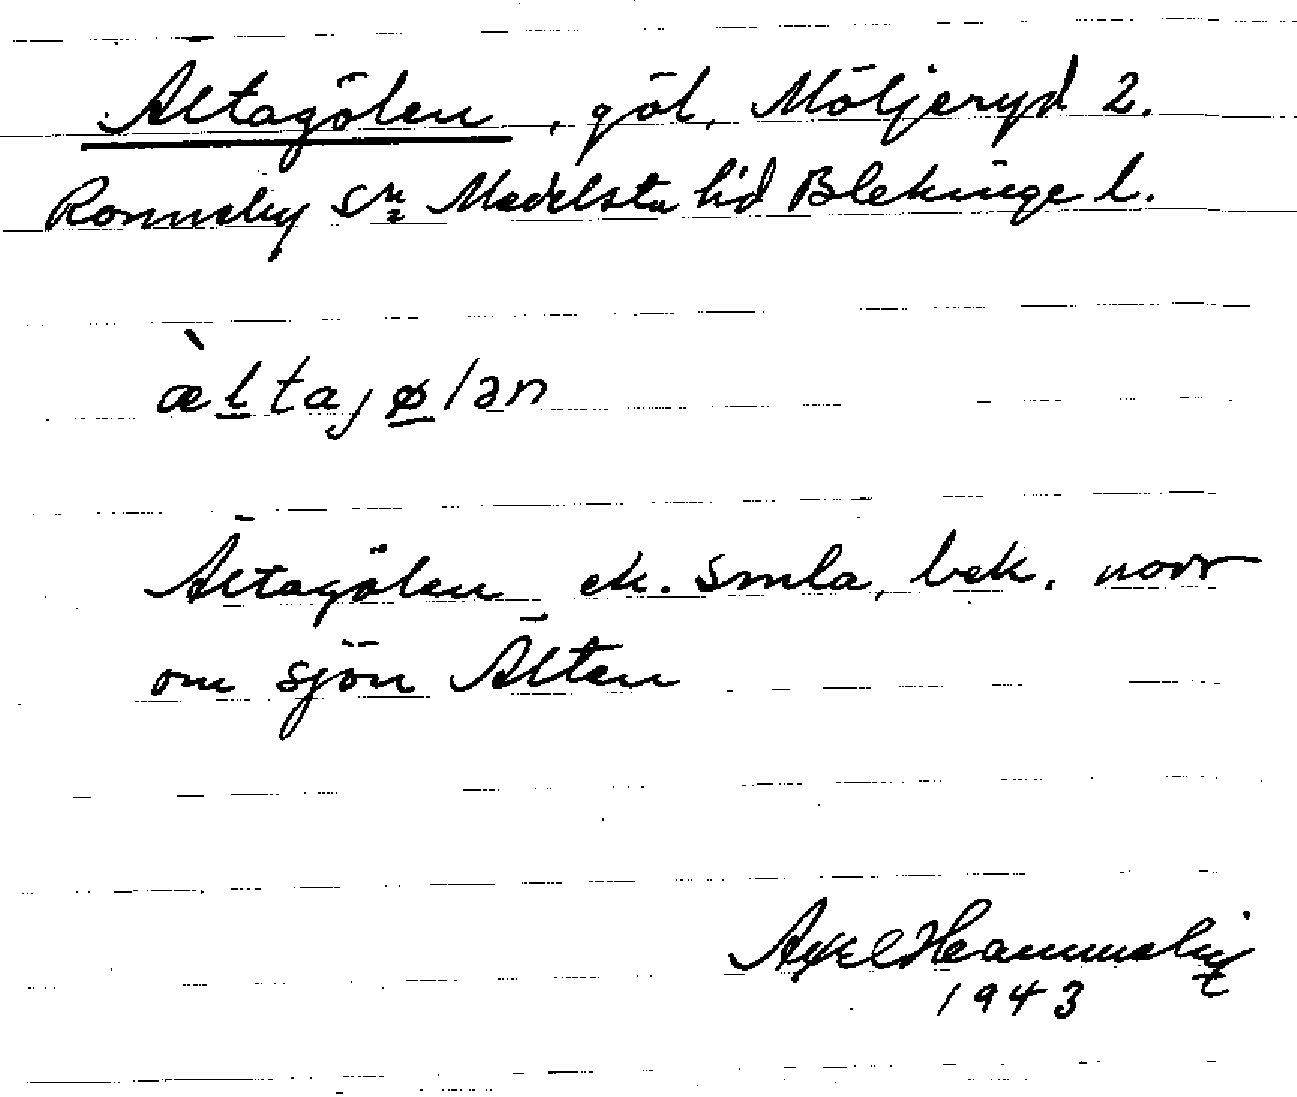 Ältagölen, göl, Möljeryd 2.
Ronneby sn Medelsta hd Blekinge l.
æ̀ltajølən
Ältagölen ek. smla, bek. norr
om sjön Älten
Axel
1943